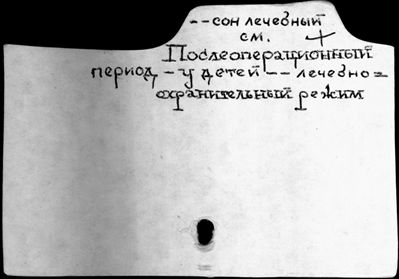 --сон лечебный
см. +
Послеоперационный
период - у детей -- лечебно=
охранительный режим